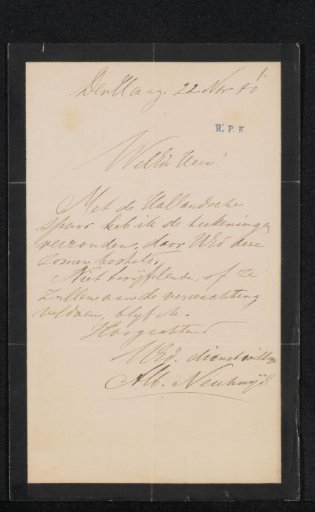 den Haag. 22 Nov 80
R.P.K
WelEd Heer!
Met de Hollandsche
spoor heb ik de teekeningen
verzonden, door UEd deze
zomer besteld.
Niet twijfelende, of ze
zullen aan de verwachting
voldoen, blijf ik.
Hoogachtend
UEd. dienstwillige
Alb. Neuhuijs